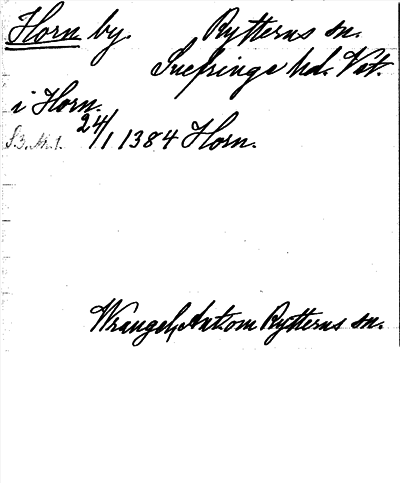 Horn by. Rytterns sn.
Snefringe hd. Vet.
i Horn.
24/1 1384 Horn.
Wrangel, Antom Rytterns sn.